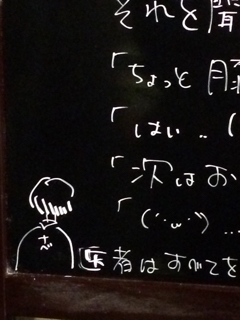 それと聞
「ちょっと
「はい..(
「次はお
「(´･ω･`)...
医者はすべてを
さべ